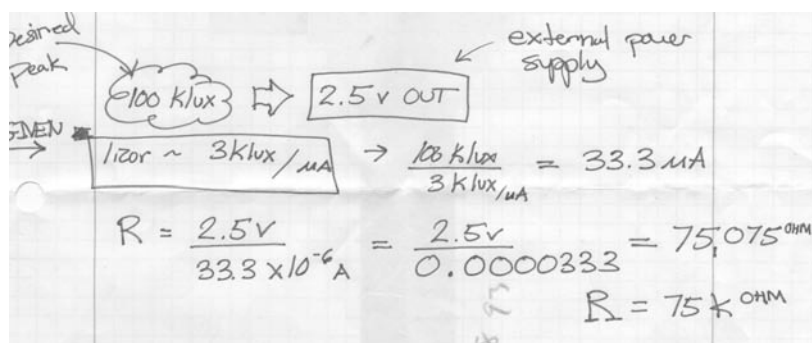 Desired
Peak
~100 Klux ⇨ 2.5v OUT
external power
supply
GIVEN
licor ~ 3Klux/μA → 100 Klux / 3Klux/μA = 33.3 μA
R = 2.5v / 33.3 x10⁻⁶ A = 2.5v / 0.0000333 = 75,075 OHM
R = 75 k OHM